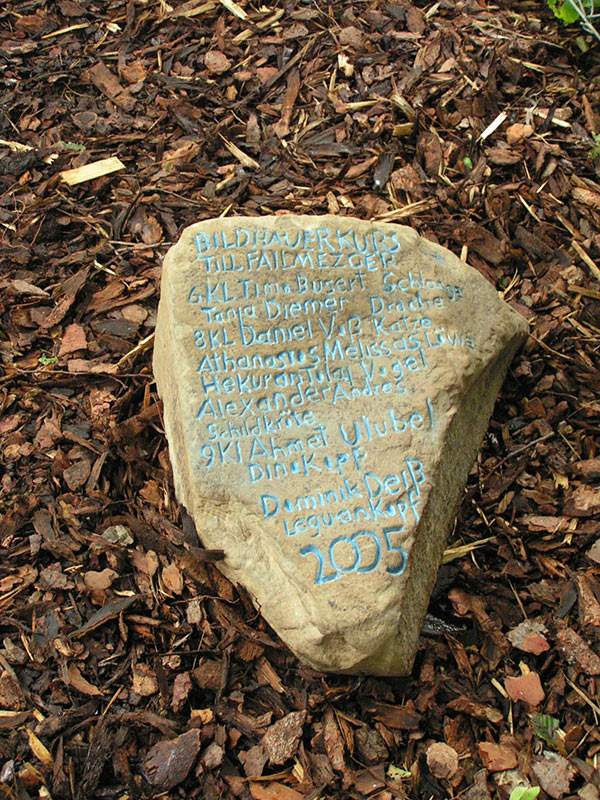 BILDHAUERKURS
TILL FAILMEZGER
6KL Timo Busert Schlange
Tanja Diemer Drache
8KL Daniel Voß Katze
Athanasios Melissas Löwe
Hekuran Tulaj Vogel
Alexander Andres
Schildkröte
9Kl Ahmet Ulubel
Dinokopf
Dominik Deiß
Leguankopf
2005